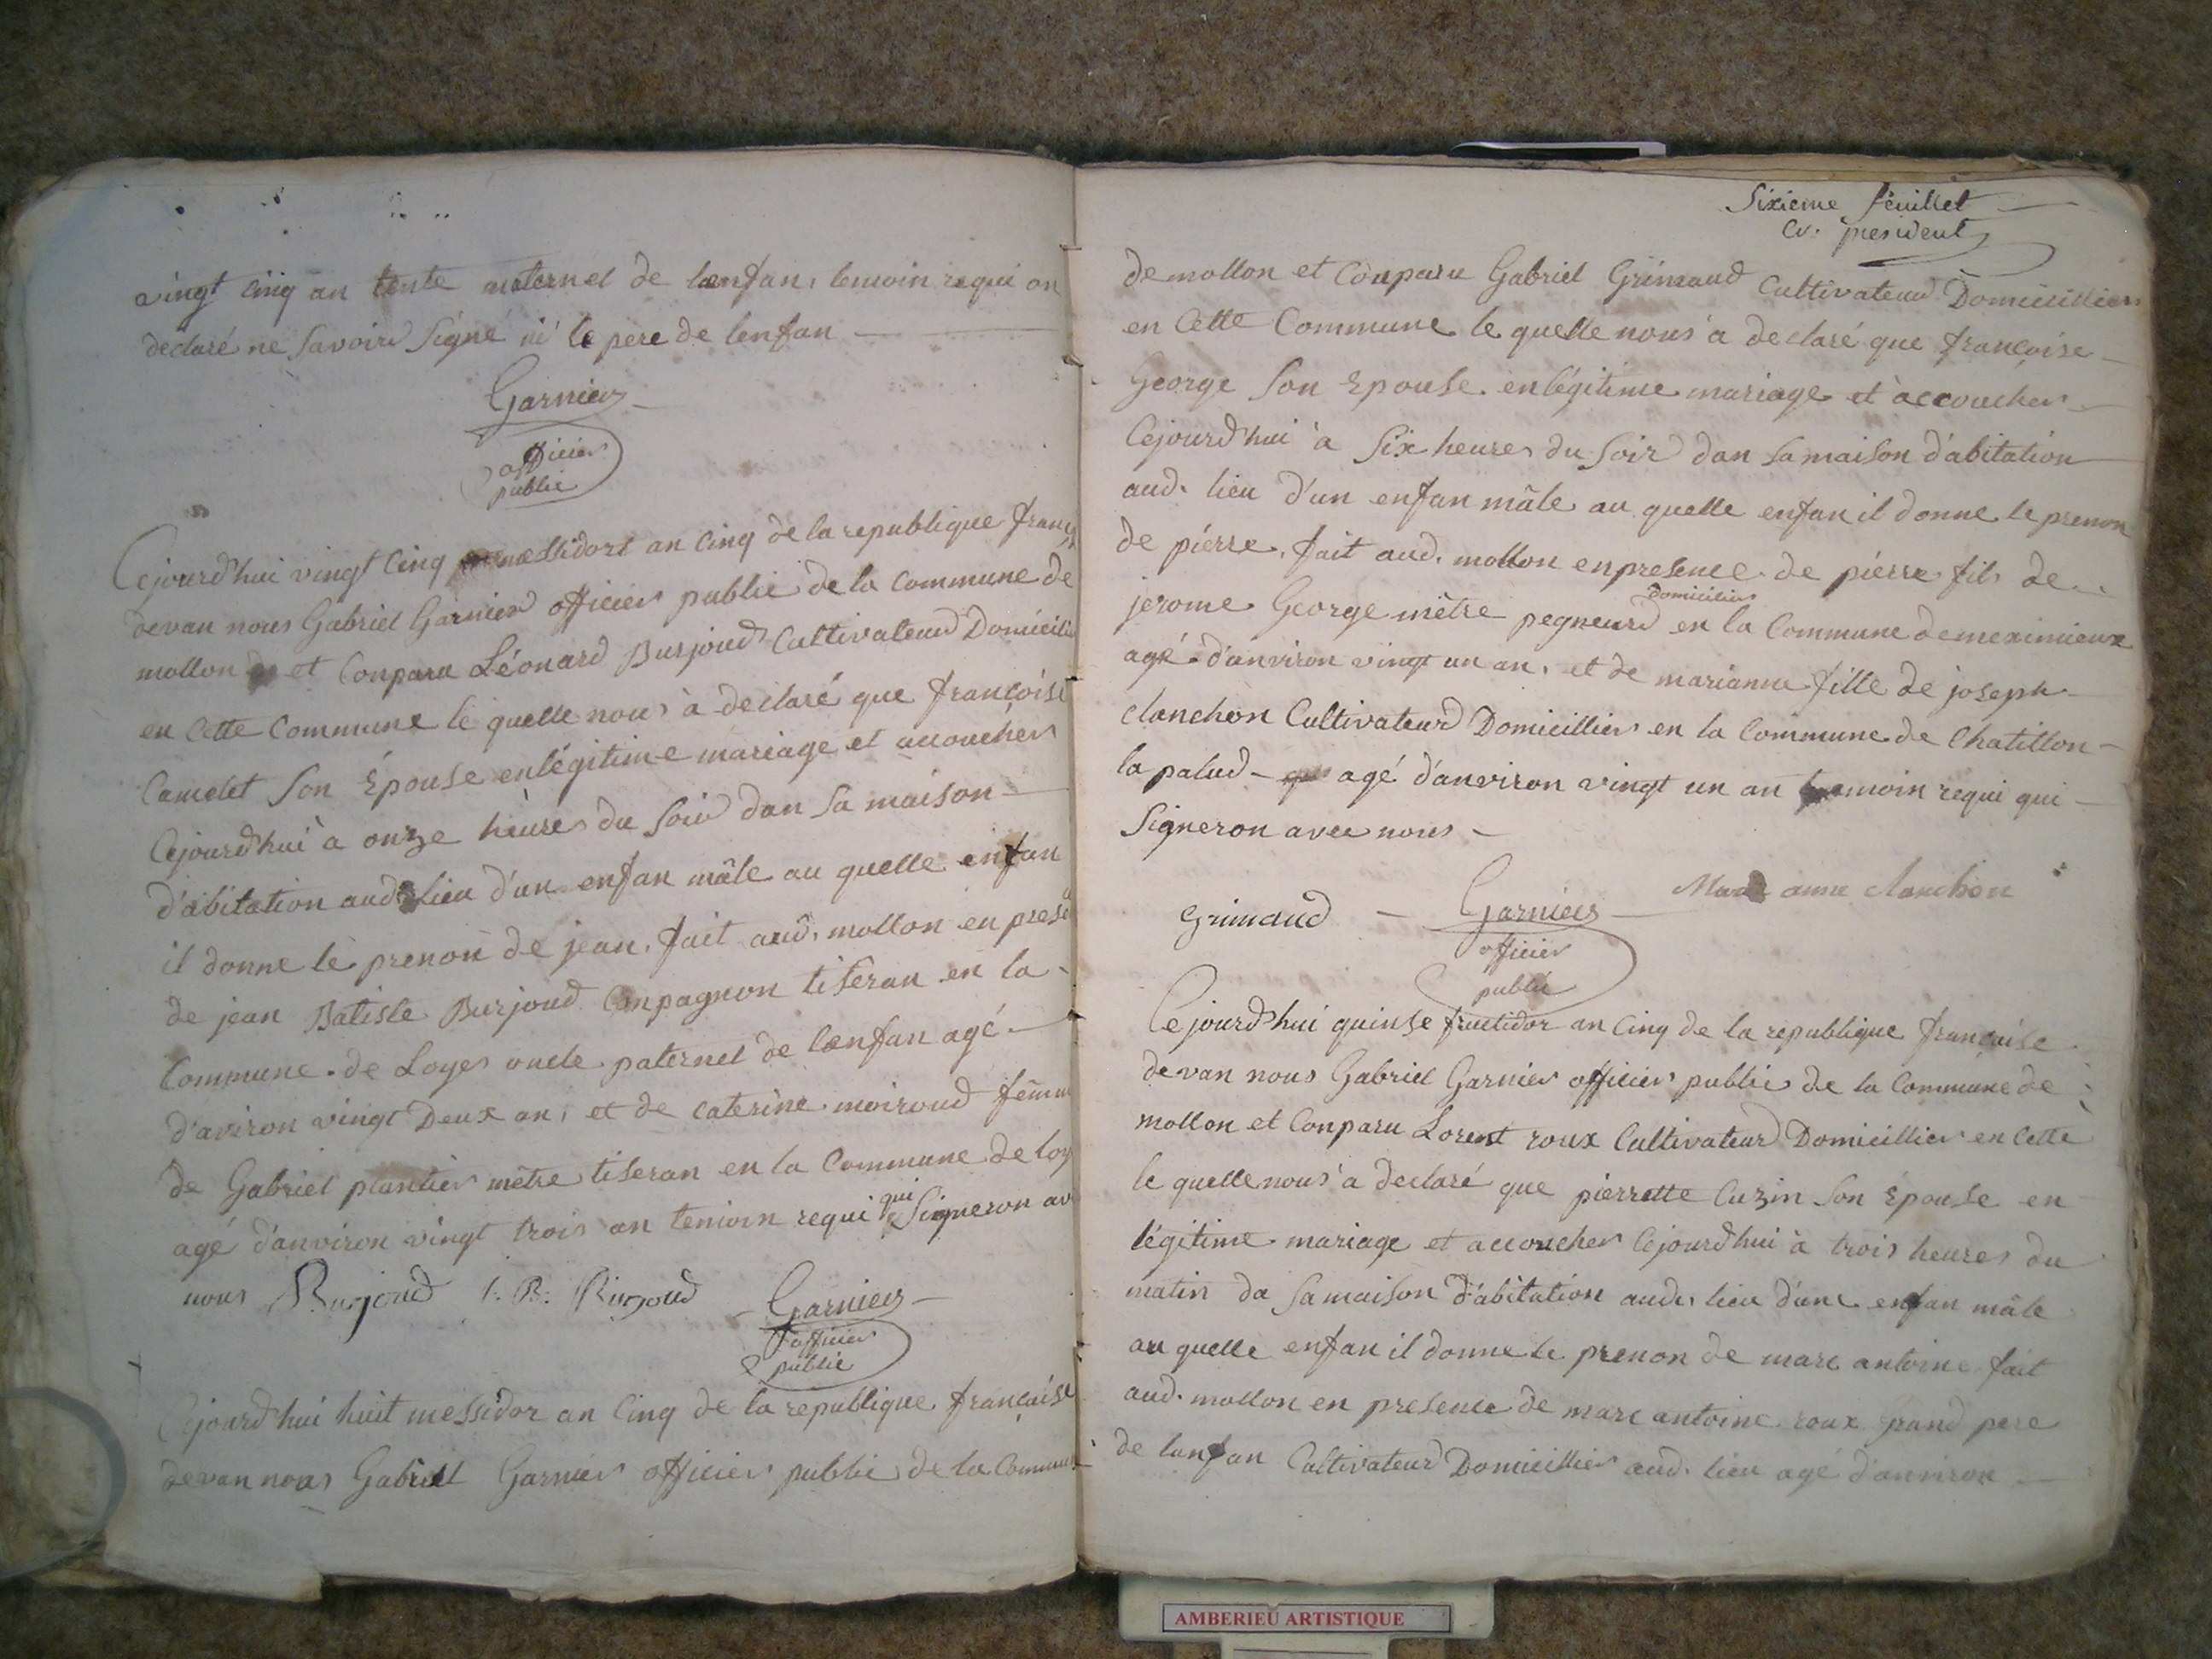 vingt cinq an tente maternel de lanfan, temoin requi on
declaré ne savoire signé ni le pere de lenfan
Garnier
officier
public
Cejourd'hui vingt cinq messidort an cinq de la republique franç
devan nous Gabriel Garnier officier public de la commune de
mollon et conparu Léonard Burjoud cultivateur Domicilie
en cette commune le quelle nous à declaré que françoise
Camelet son épouse en légitime mariage et accoucher
cejourd'hui à onze heures du soir dan sa maison
d'abitation aud. lieu d'un enfan mâle au quelle enfan
il donne le prenon de jean. fait aud. mollon en prese
de jean Batiste Burjoud conpagnon tiseran en la
commune de Loyes oncle paternel de lanfan agé
d'aviron vingt Deux an, et de caterine moiroud femm
de Gabriel plantier mètre tiseran en la commune de loy
agé d'anviron vingt trois an temoin requi qui signeron av
nous Burjoud J. B. Burjoud Garnier
officier
public
Cejourd'hui huit messidor an cinq de la republique française
devan nous Gabriel Garnier officier public de la commune
Sixieme feuillet
president
de mollon et conparu Gabriel Grimaud cultivateur Domicillier
en cette commune le quelle nous à declaré que françoise
George son Epouse en légitime mariage et accoucher
cejourd'hui à six heures du soir dan sa maison d'abitation
aud. lieu d'un enfan mâle au quelle enfan il donne le prenon
de piérre. fait aud. mollon en presence de piérre fils de
jerome George mètre pegneurd Domicilier en la commune de meximieux
agé d'anviron vingt un an, et de marianne fille de joseph
clanchon cultivateur Domicillier en la commune de chatillon
la palud agé d'anviron vingt un an temoin requi qui
signeron avec nous
Grimaud Garnier Marie anne clanchon
officier
public
Cejourd'hui quinse fructidor an cinq de la republique française
devan nous Gabriel Garnier officier public de la commune de
mollon et conparu Lorent roux cultivateur Domicillier en cette
le quelle nous à declaré que pierrette cuzin son épouse en
légitime mariage et accoucher cejourd'hui à trois heures du
matin da sa maison d'abitation aud. lieu d'une enfan mâle
au quelle enfan il donne le prenon de marc antoine fait
aud. mollon en presence de marc antoine roux grand pere
de lanfan cultivateur Domicillier aud. lieu agé d'anviron
AMBERIEU ARTISTIQUE